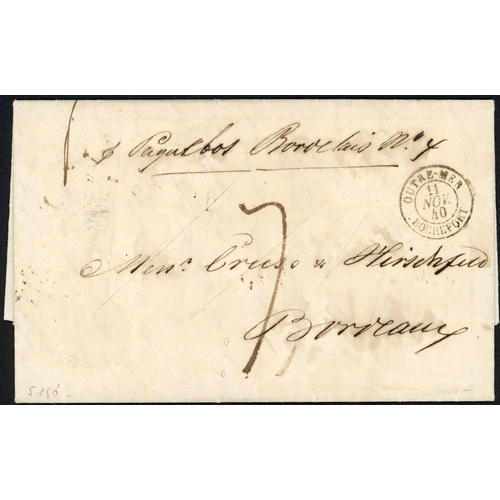 p Paquebot Bordelais No. 4
OUTRE-MER
11
NOV.
40
ROCHEFORT
7
Mess. Cruse & Hirschfeld
Bordeaux